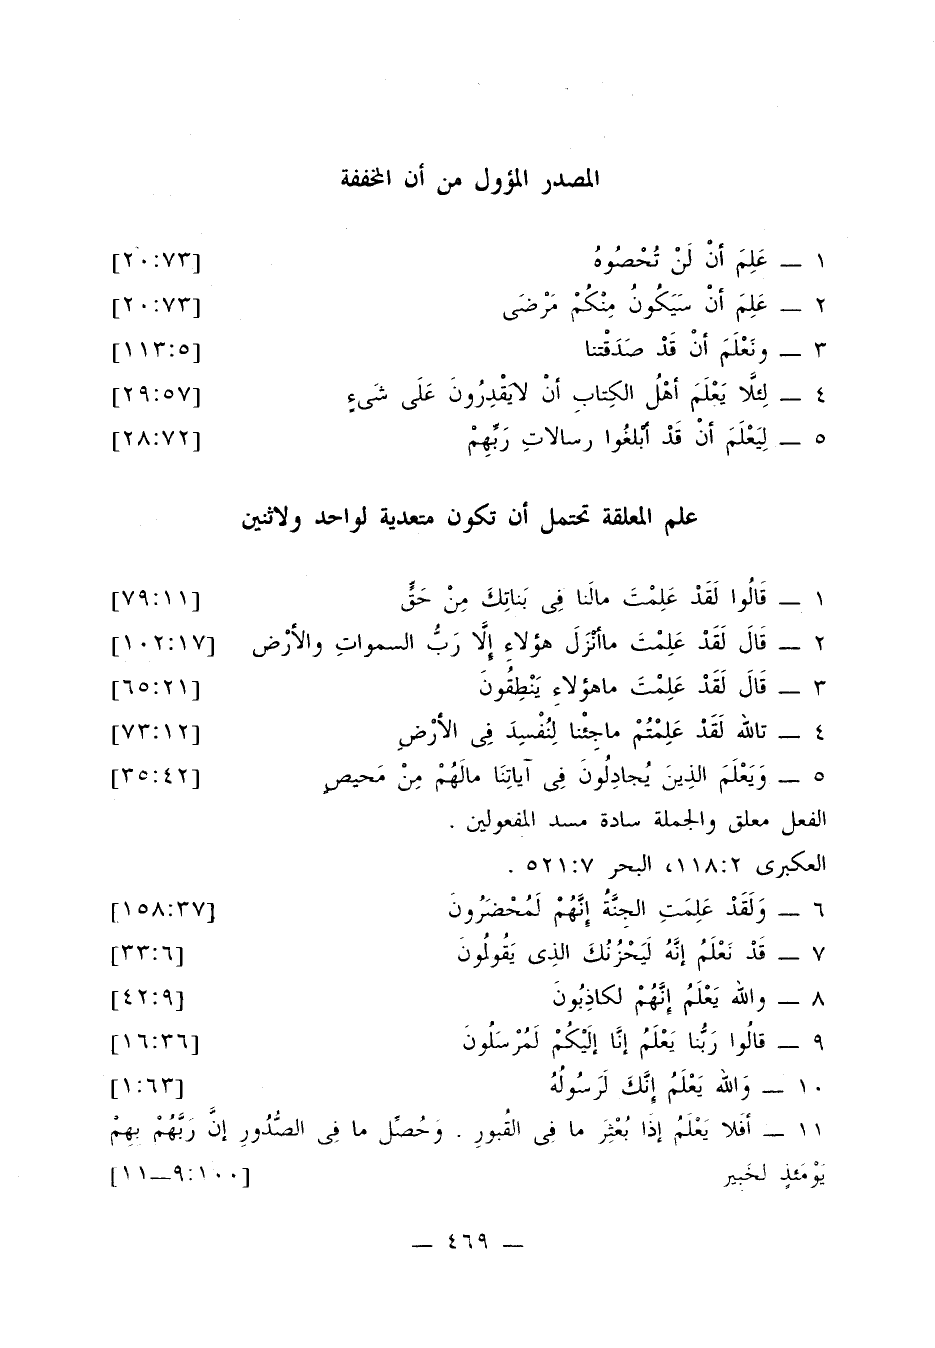 المصدر المؤول من أن المخففة
١ — عَلِمَ أنْ لَنْ تُحْصُوهُ [٢٠:٧٣]
٢ — عَلِمَ أنْ سَيَكُونُ مِنْكُمْ مَرْضَى [٢٠:٧٣]
٣ — ونَعْلَمَ أنْ قَدْ صَدَقْتنا [١١٣:٥]
٤ — لِئلَّا يَعْلَمَ أهْلُ الكِتابِ أنْ لايَقْدِرُونَ عَلَى شَىءٍ [٢٩:٥٧]
٥ — لِيَعْلَمَ أنْ قَدْ أَبْلغُوا رسالاتِ رَبِّهِمْ [٢٨:٧٢]
علم المعلقة تحتمل أن تكون متعدية لواحد ولاثنين
١ — قَالُوا لَقَدْ عَلِمْتَ مالَنا فِى بَناتِكَ مِنْ حَقٍّ [٧٩:١١]
٢ — قَالَ لَقَدْ عَلِمْتَ ماأنْزَلَ هؤلاءِ إلَّا رَبُّ السمواتِ والأرْض [١٠٢:١٧]
٣ — قَالَ لَقَدْ عَلِمْتَ ماهؤلاءِ يَنْطِقُونَ [٦٥:٢١]
٤ — تالله لَقَدْ عَلِمْتُمْ ماجِئْنا لِنُفْسِدَ فِى الأرْضِ [٧٣:١٢]
٥ — وَيَعْلَمَ الذِينَ يُجادِلُونَ فِى آياتِنَا مالَهُمْ مِنْ مَحيصٍ [٣٥:٤٢]
الفعل معلق والجملة سادة مسد المفعولين .
العكبرى ١١٨:٢، البحر ٥٢١:٧ .
٦ — وَلَقَدْ عَلِمَتِ الجِنَّةُ إنَّهُمْ لَمُحْضَرُونَ [١٥٨:٣٧]
٧ — قَدْ نَعْلَمُ إنَّهُ لَيَحْزُنُكَ الذِى يَقُولُونَ [٣٣:٦]
٨ — والله يَعْلَمُ إنَّهُمْ لكاذِبُونَ [٤٢:٩]
٩ — قالُوا رَبُّنا يَعْلَمُ إنَّا إلَيْكُمْ لَمُرْسَلُونَ [١٦:٣٦]
١٠ — وَالله يَعْلَمُ إنَّكَ لَرَسُولُهُ [١:٦٣]
١١ — أفَلا يَعْلَمُ إذَا بُعْثِرَ ما فى القُبورِ . وَحُصِّل ما فى الصُّدُورِ إنَّ رَبَّهُمْ بِهِمْ
يَوْمَئذٍ لخَبير [١٠٠:٩—١١]
— ٤٦٩ —